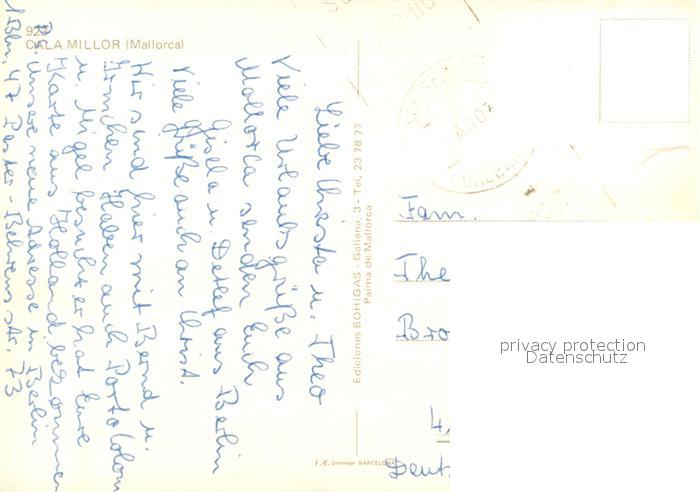 923
CALA MILLOR (Mallorca)
Liebe Christa u. Theo
Viele Urlaubsgrüße aus
Mallorca senden Euch
Gisela u. Detlef aus Berlin
Viele Grüße auch an Christ.
Wir sind hier mit Bernd u.
Haben auch
u. Migel besucht er hat Eure
Karte aus Holland bekommen
Ps. Unsere neue Adresse in Berlin
1 Bln. 47 Str. 73
Ediciones BOHIGAS - Galiana, 3 - Tel. 23 78 77
Palma de Mallorca
I. G. Domingo BARCELONA
AGO
Fam.
The
Bro
4
Deut
privacy protection
Datenschutz